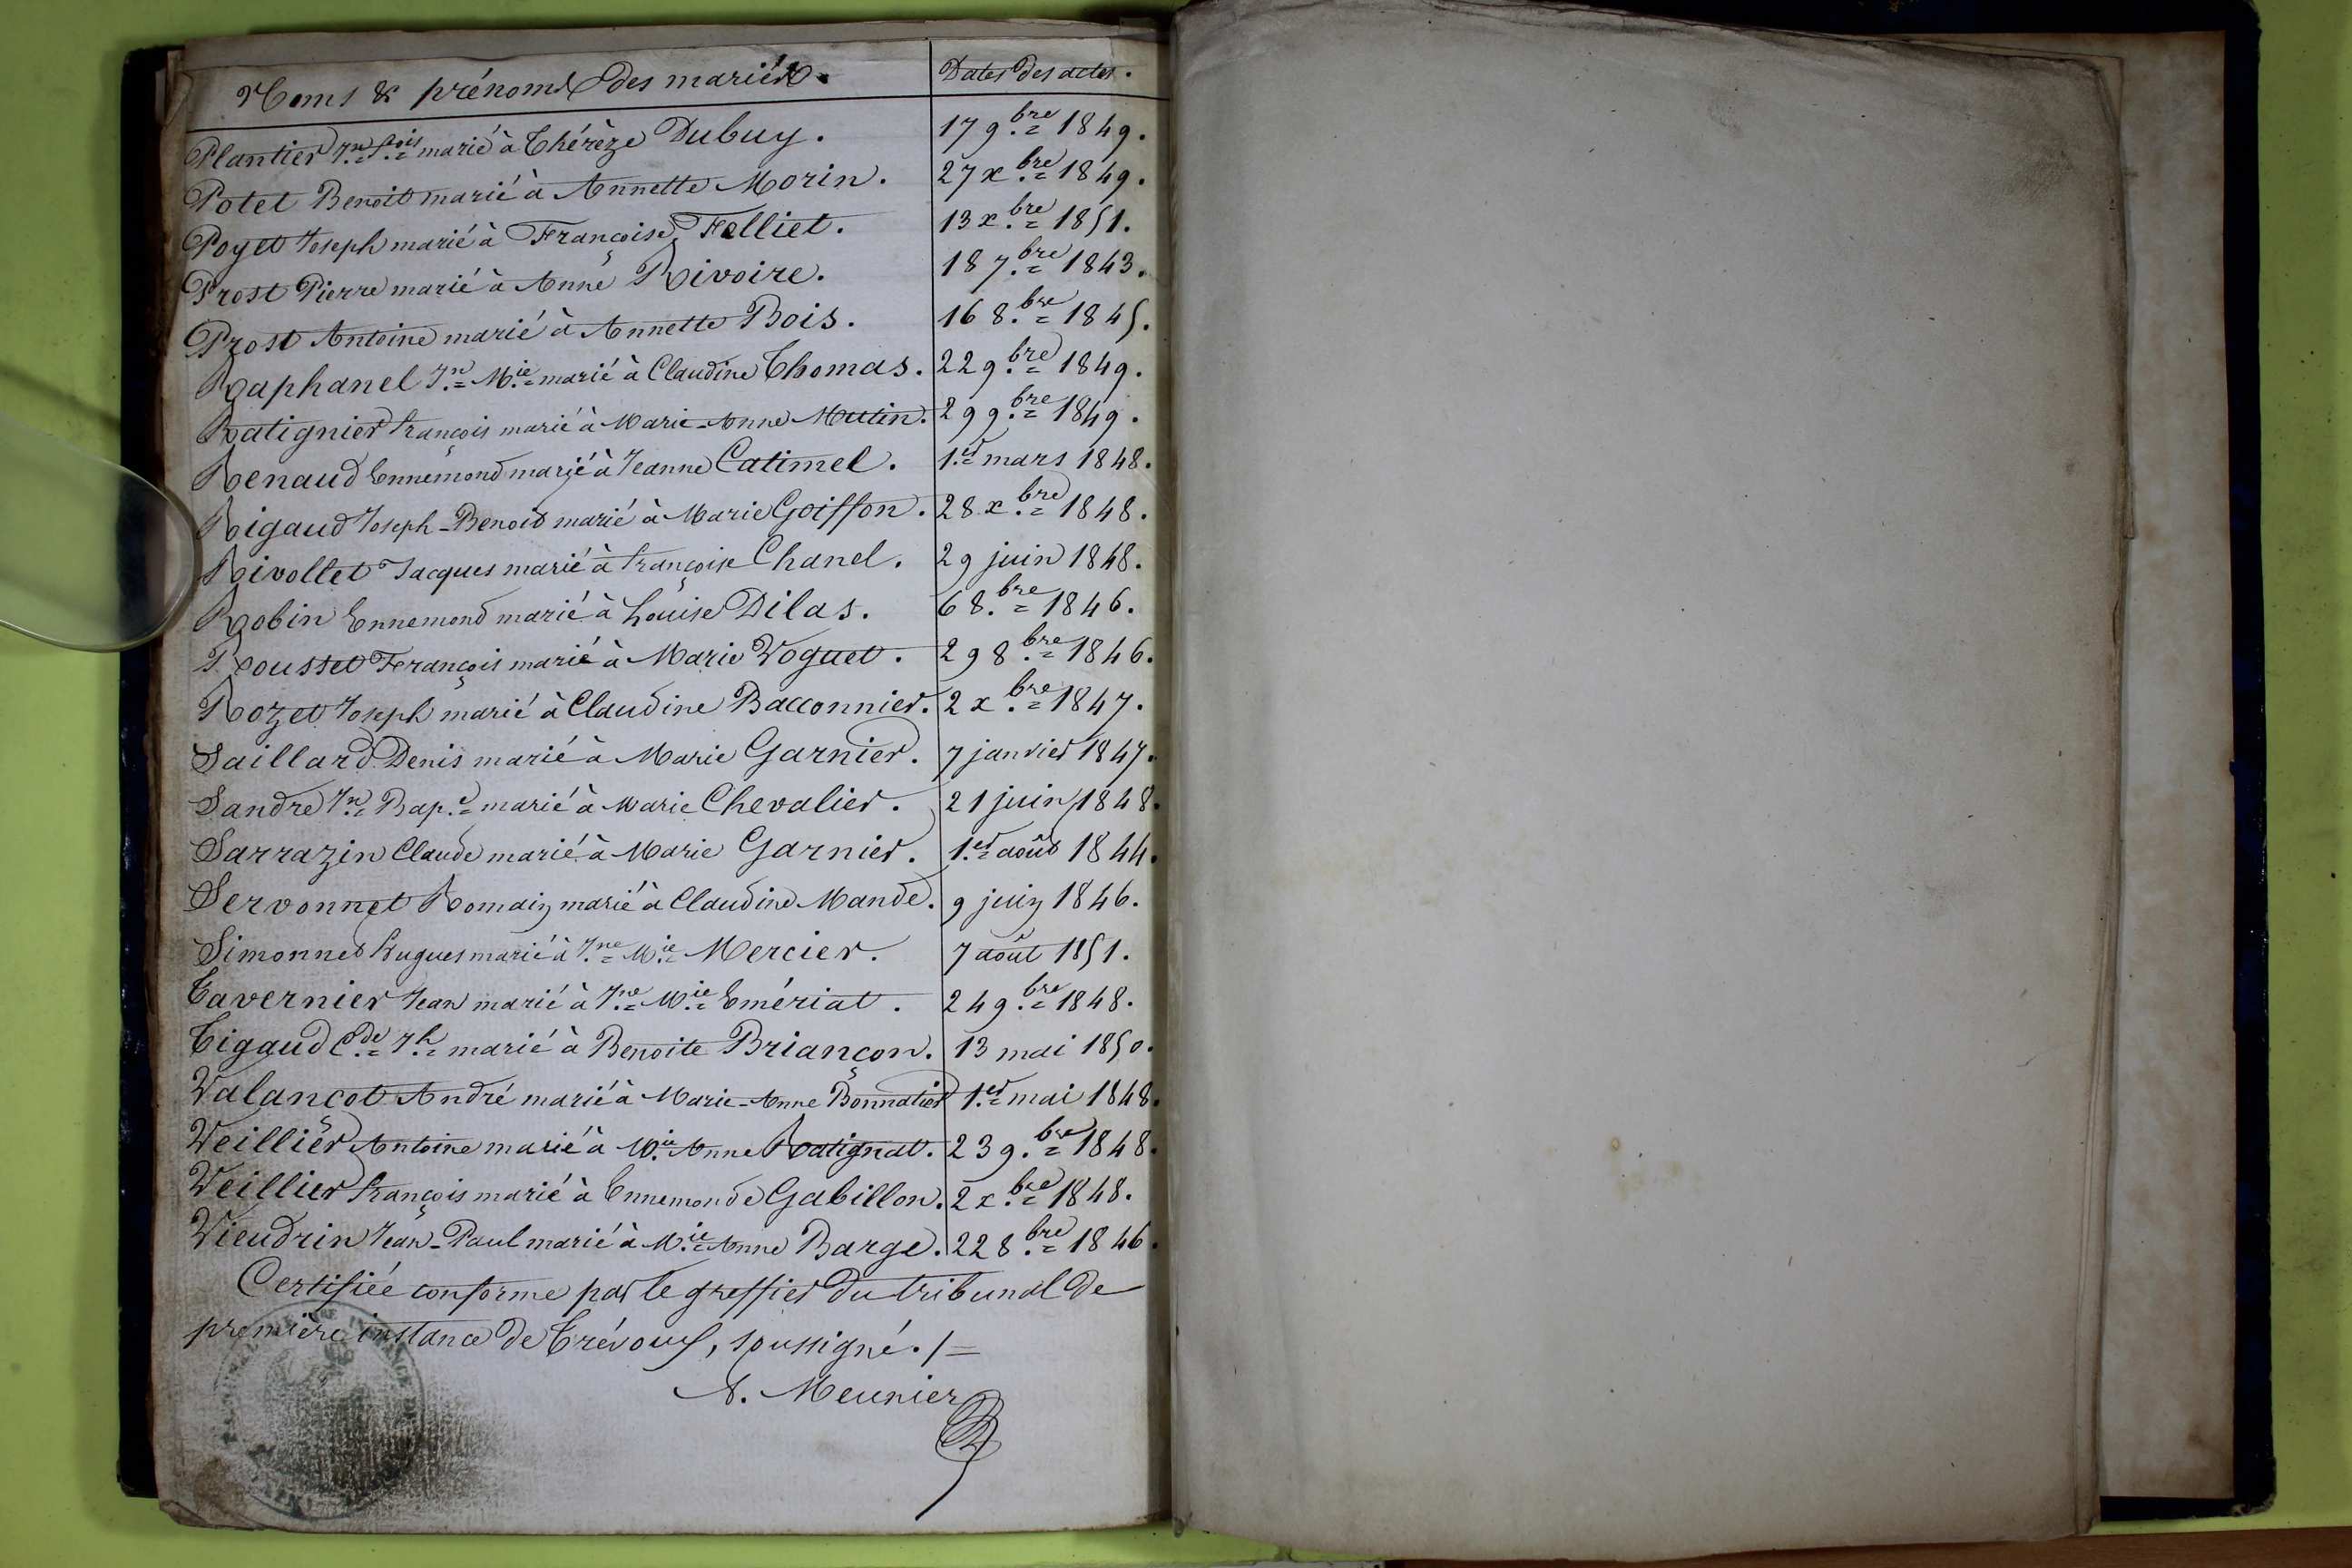 Noms & prénoms des mariés. Dates des actes.
Plantier Jn. Fois. marié à Thérèze Dubuy. 17 9.bre 1849.
Potet Benoit marié à Annette Morin. 27 x.bre 1849.
Poyet Joseph marié à Françoise Felliet. 13 x.bre 1851.
Prost Pierre marié à Anne Rivoire. 18 7.bre 1843.
Prost Antoine marié à Annette Bois. 16 8.bre 1845.
Raphanel Jn. Mie. marié à Claudine Thomas. 22 9.bre 1849.
Ratignier François marié à Marie-Anne Mutin. 29 9.bre 1849.
Renaud Ennemond marié à Jeanne Catimel. 1.er mars 1848.
Rigaud Joseph-Benoit marié à Marie Goiffon. 28 x.bre 1848.
Rivollet Jacques marié à Françoise Chanel. 29 juin 1848.
Robin Ennemond marié à Louise Dilas. 6 8.bre 1846.
Rousset François marié à Marie Voguet. 29 8.bre 1846.
Rozet Joseph marié à Claudine Bacconnier. 2 x.bre 1847.
Saillard Denis marié à Marie Garnier. 7 janvier 1847.
Sandre Jn. Bap.e marié à Marie Chevalier. 21 juin 1848.
Sarrazin Claude marié à Marie Garnier. 1.er août 1844.
Servonnet Romain marié à Claudine Mande. 9 juin 1846.
Simonnet Hugues marié à Jne. Mie. Mercier. 7 août 1851.
Tavernier Jean marié à Jne. Mie. Emériat. 24 9.bre 1848.
Tigaud Cde. Jh. marié à Benoite Briançon. 13 mai 1850.
Valançot André marié à Marie-Anne Bonnatier 1.er mai 1848.
Veillier Antoine marié à Mie. Anne Ratignat. 23 9.bre 1848.
Veillier François marié à Ennemonde Gabillon. 2 x.bre 1848.
Vieudrin Jean-Paul marié à Mie. Anne Barge. 22 8.bre 1846.
Certifiée conforme par le greffier du tribunal de
première instance de Trévoux, soussigné. /=
A. Meunier